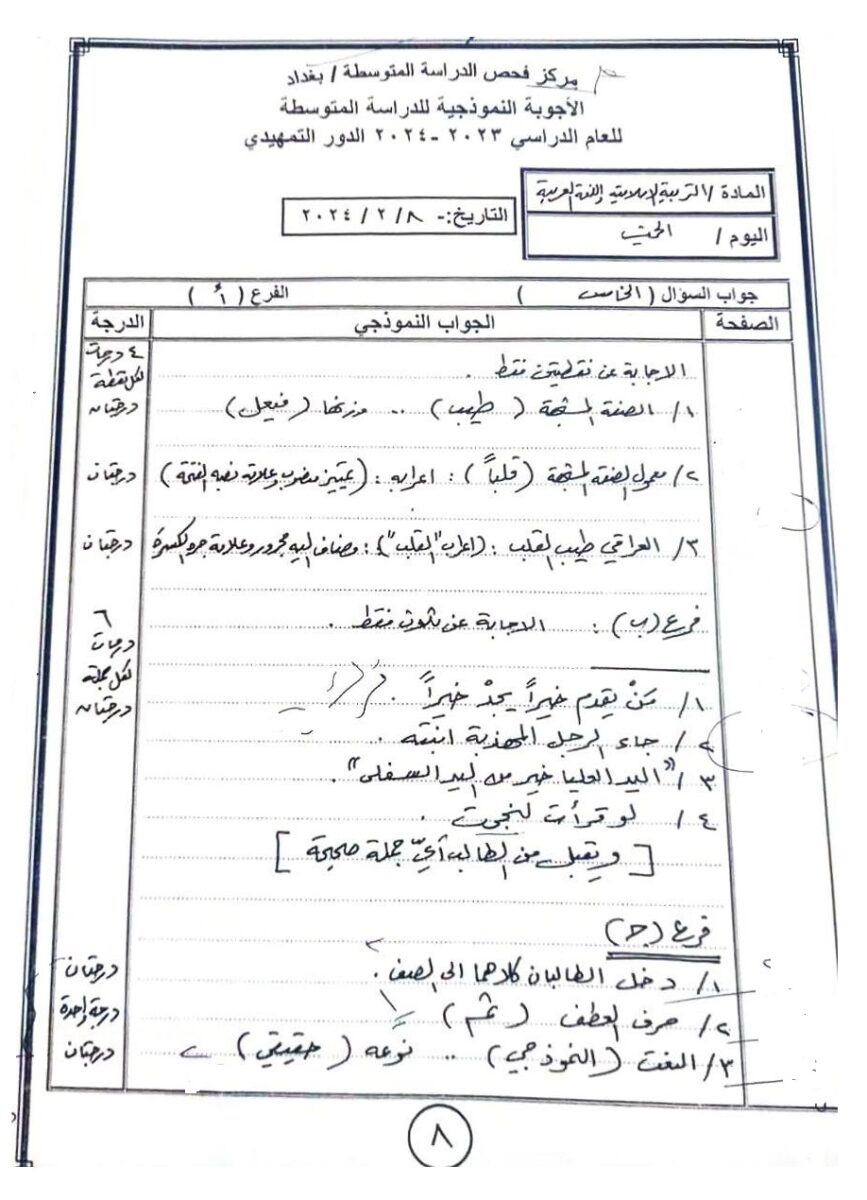 مركز فحص الدراسة المتوسطة / بغداد
الأجوبة النموذجية للدراسة المتوسطة
للعام الدراسي ٢٠٢٣ - ٢٠٢٤ الدور التمهيدي
المادة / التربية الاسلامية واللغة العربية
التاريخ:- ٢٠٢٤ / ٢ / ٨
اليوم /
جواب السؤال ( الخامس ) الفرع ( أ )
الصفحة الجواب النموذجي الدرجة
الاجابة عن نقطتين فقط . ٤ درجات لكل نقطة درجتان
١/ الصفة المشبهة ( طيب ) .. وزنها ( فيعل )
٢/ معمول الصفة المشبهة ( قلباً ) : اعرابه : ( تمييز منصوب وعلامة نصبه الفتحة ) درجتان
٣/ العراقي طيب القلب : ( اعراب "القلب" ) : مضاف اليه مجرور وعلامة جره الكسرة درجتان
فرع (ب) : الاجابة عن ثلاث فقط . ٦ درجات لكل جملة درجتان
١/ مَنْ يقدم خيراً يجدْ خيراً .
٢/ جاء الرجل المهذبة ابنته .
٣/ "اليد العليا خير من اليد السفلى" .
٤/ لو قرأت لنجحت .
[ ويقبل من الطالب أيّ جملة صحيحة ]
فرع (ج)
١/ دخل الطالبان كلاهما الى الصف . درجتان
٢/ حرف العطف ( ثم ) درجة واحدة
٣/ النعت ( النموذجي ) .. نوعه ( حقيقي ) درجتان
٨